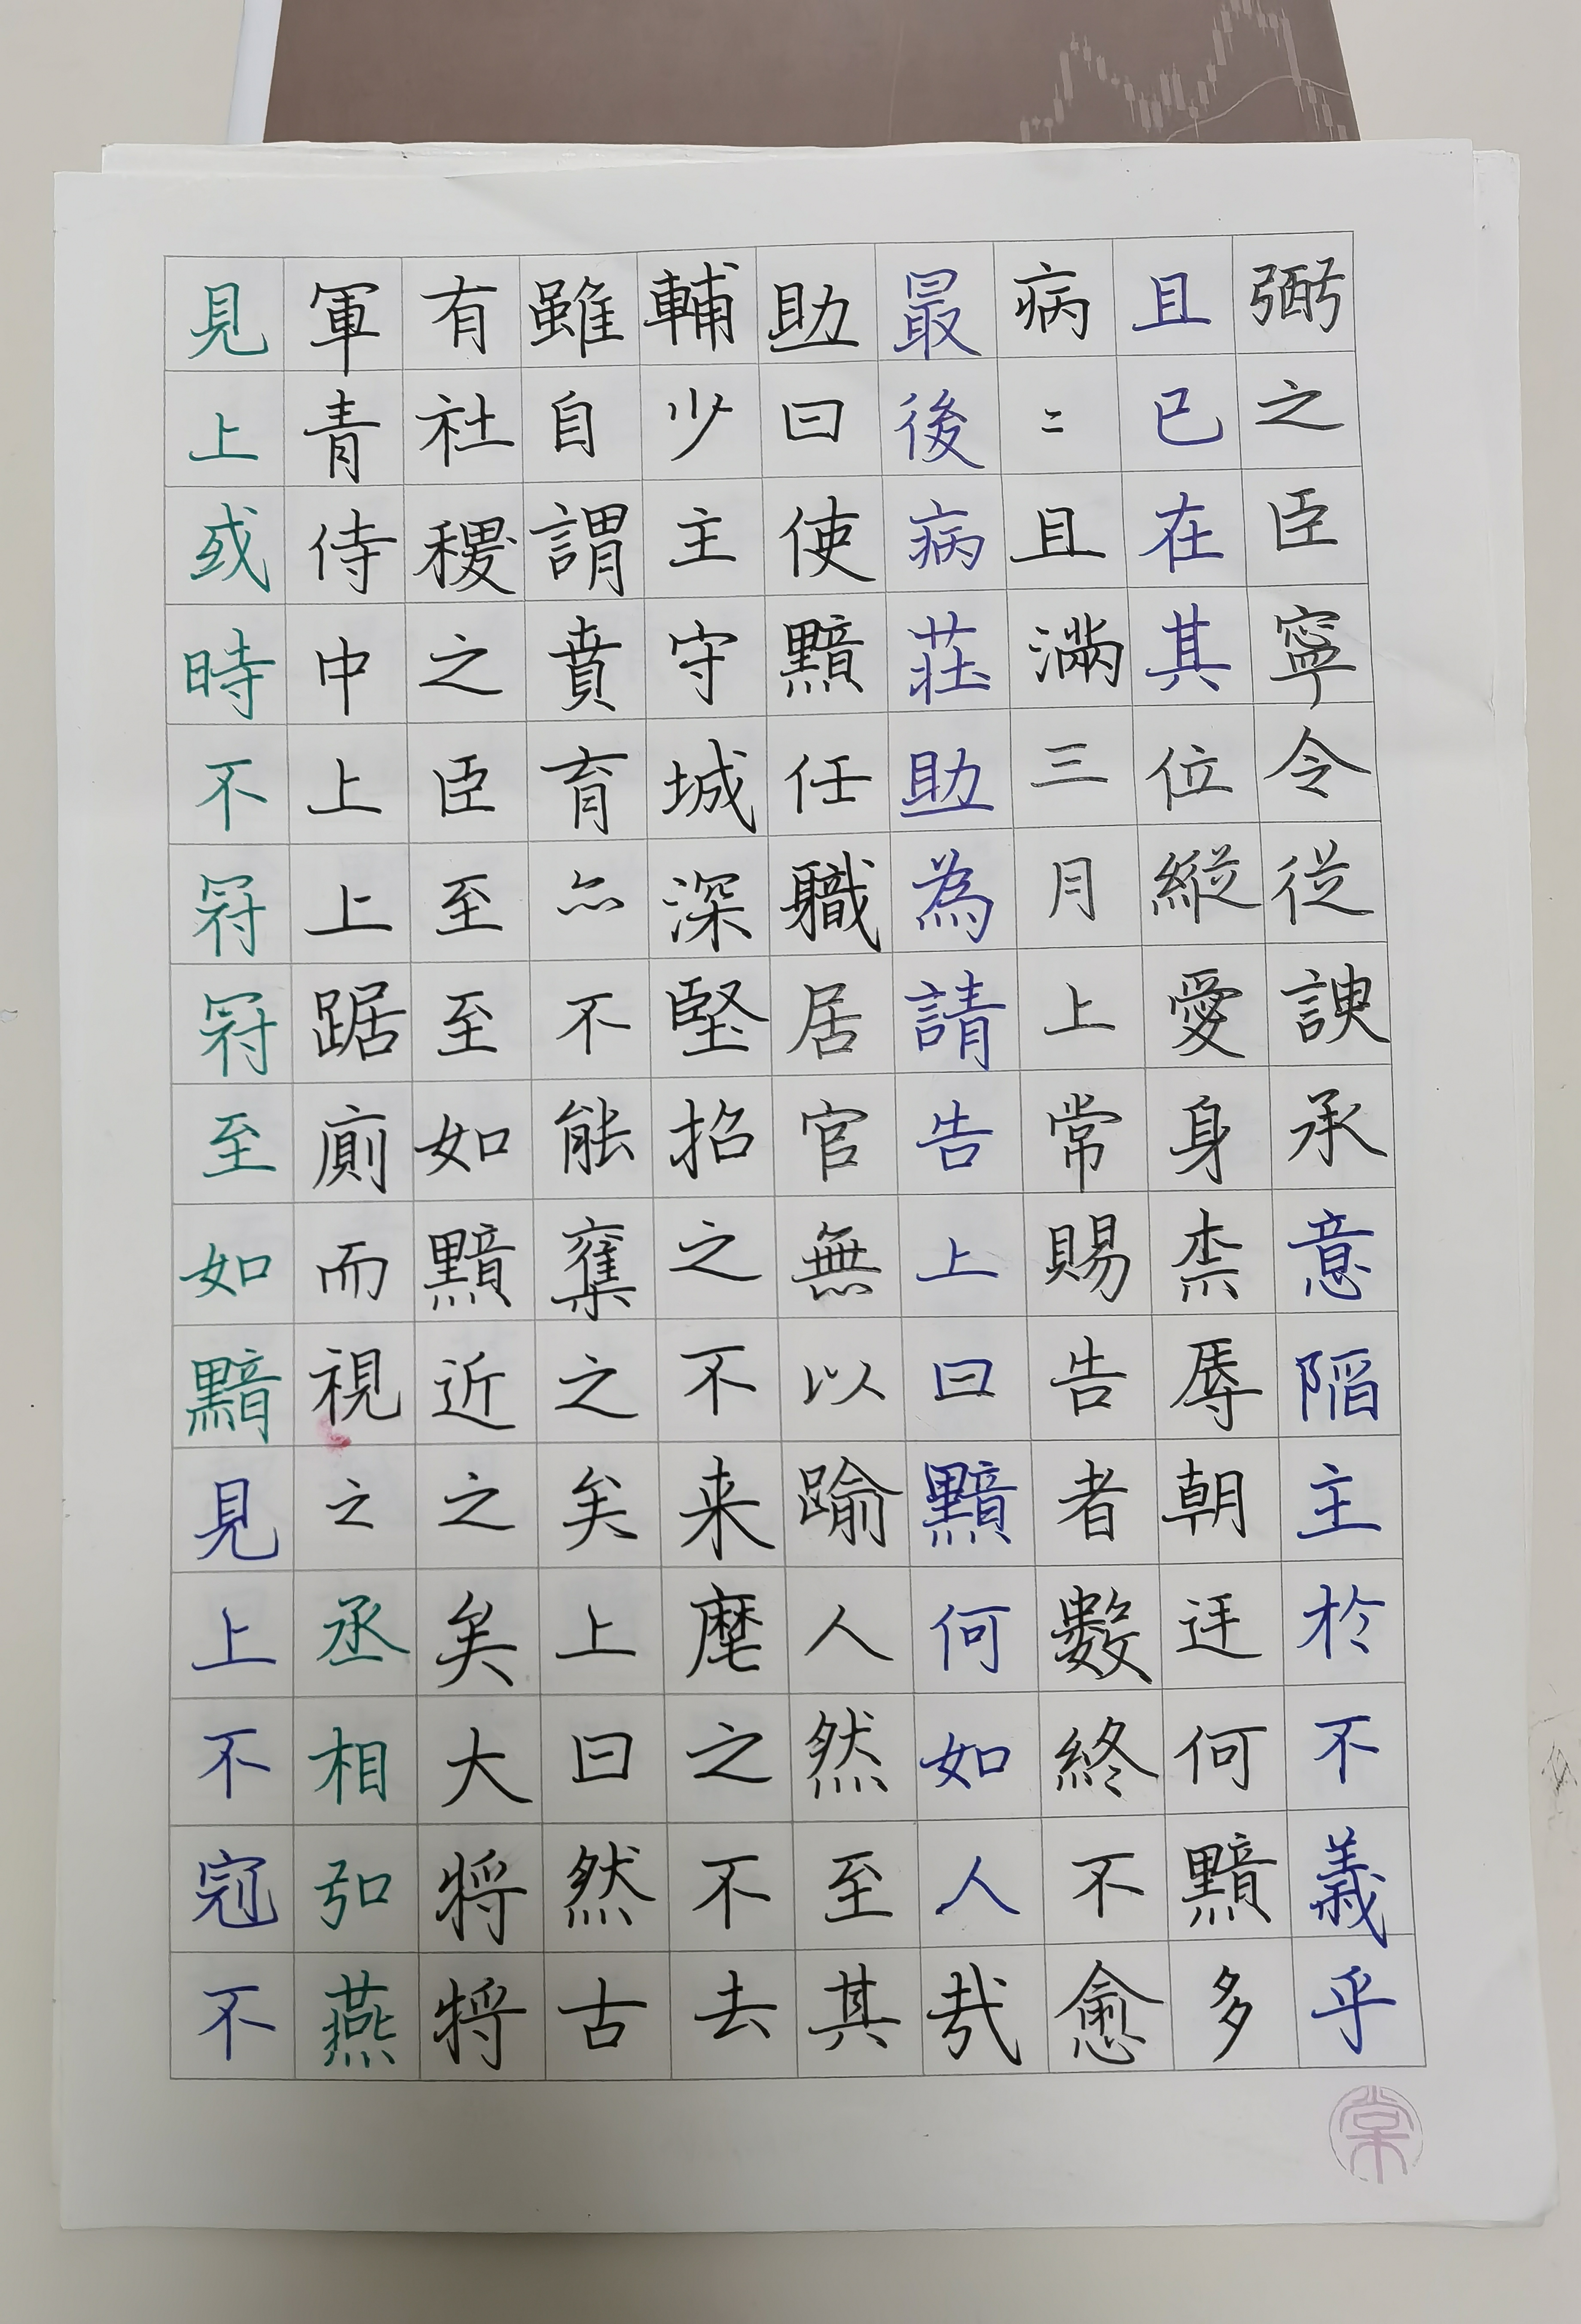 弼之臣寧令從諛承意陷主於不義乎
且已在其位縱愛身柰辱朝廷何黯多
病〻且滿三月上常賜告者數終不愈
最後病莊助為請告上曰黯何如人哉
助曰使黯任職居官無以踰人然至其
輔少主守城深堅招之不来麾之不去
雖自謂賁育亦不能奪之矣上曰然古
有社稷之臣至至如黯近之矣大將將
軍青侍中上上踞廁而視之丞相弘燕
見上或時不冠冠至如黯見上不冠不